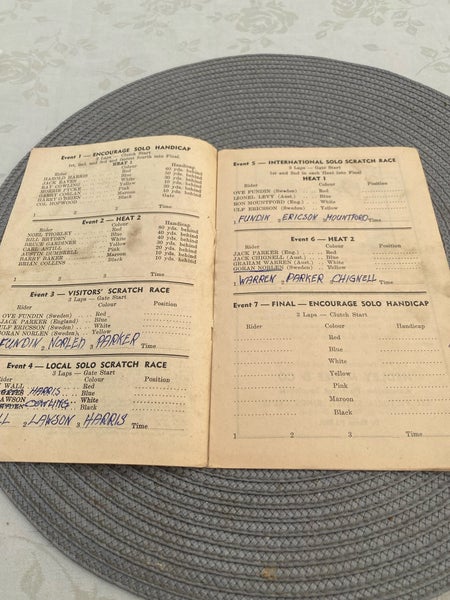 Event 1 — ENCOURAGE SOLO HANDICAP
3 Laps — Clutch Start
1st, 2nd, and 3rd and fastest fourth into Final
HEAT 1
Rider Colour Handicap
HAROLD HARRIS Red
JACK BAYES Blue
RAY COWLING White
Yellow
Pink
Maroon
HARRY O'BRIEN Black
COL HOPWOOD
1 2 3 Time
Event 2 — HEAT 2
Rider Colour Handicap
NOEL THORLEY Red
BILL BRYDEN Blue
BRUCE GARDINER White
CARL ASTILL Yellow
AUSTIN DUNDERELL Pink
BARRY BAKER Maroon
BRIAN COLLINS Black
1 2 3 Time
Event 3 — VISITORS' SCRATCH RACE
3 Laps — Gate Start
Rider Colour Position
OVE FUNDIN (Sweden) Red
JACK PARKER (England) Blue
ULF ERICSSON (Sweden) White
GORAN NORLEN (Sweden) Yellow
FUNDIN 2 NORLEN 3 PARKER Time
Event 4 — LOCAL SOLO SCRATCH RACE
3 Laps — Gate Start
Rider Colour Position
WALL Red
HARRIS Blue
LAWSON COWLING White
Black
LL 2 LAWSON 3 HARRIS Time
Event 5 — INTERNATIONAL SOLO SCRATCH RACE
3 Laps — Gate Start
1st and 2nd in each Heat into Final
HEAT 1
Rider Colour Position
OVE FUNDIN (Sweden) Red
LIONEL LEVY (Aust.) Blue
RON MOUNTFORD (Eng.) White
ULF ERICSSON (Sweden) Yellow
1 FUNDIN 2 ERICSON 3 MOUNTFORD Time
Event 6 — HEAT 2
Rider Colour Position
JACK PARKER (Eng.) Red
JACK CHIGNELL (Aust.) Blue
GRAHAM WARREN (Aust.) White
GORAN NORLEN (Sweden) Yellow
1 WARREN 2 PARKER 3 CHIGNELL Time
Event 7 — FINAL — ENCOURAGE SOLO HANDICAP
3 Laps — Clutch Start
Rider Colour Handicap
Red
Blue
White
Yellow
Pink
Maroon
Black
1 2 3 Time